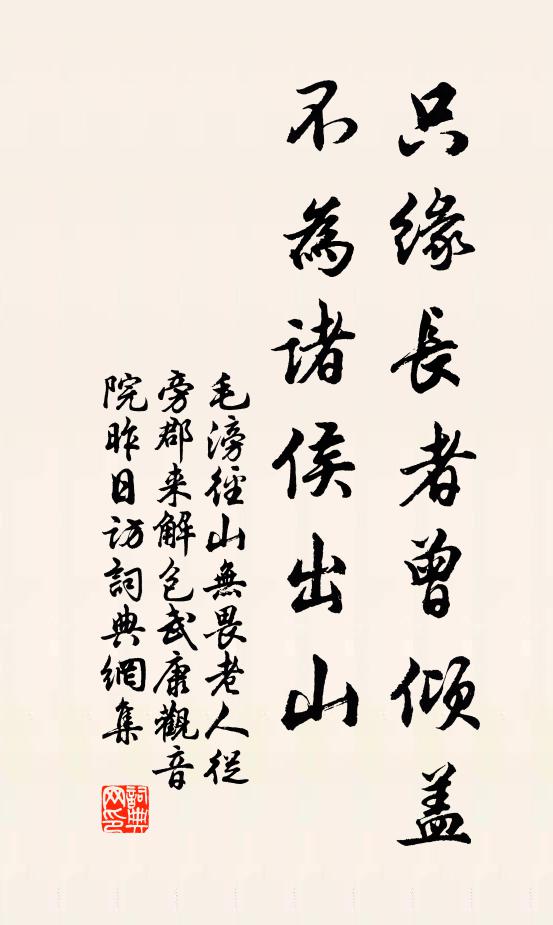 只缘長者曾倾盖
不為諸侯出山
毛滂径山無畏老人從
旁郡来解包武康觀音
院昨日访詞典網集
詞典网印